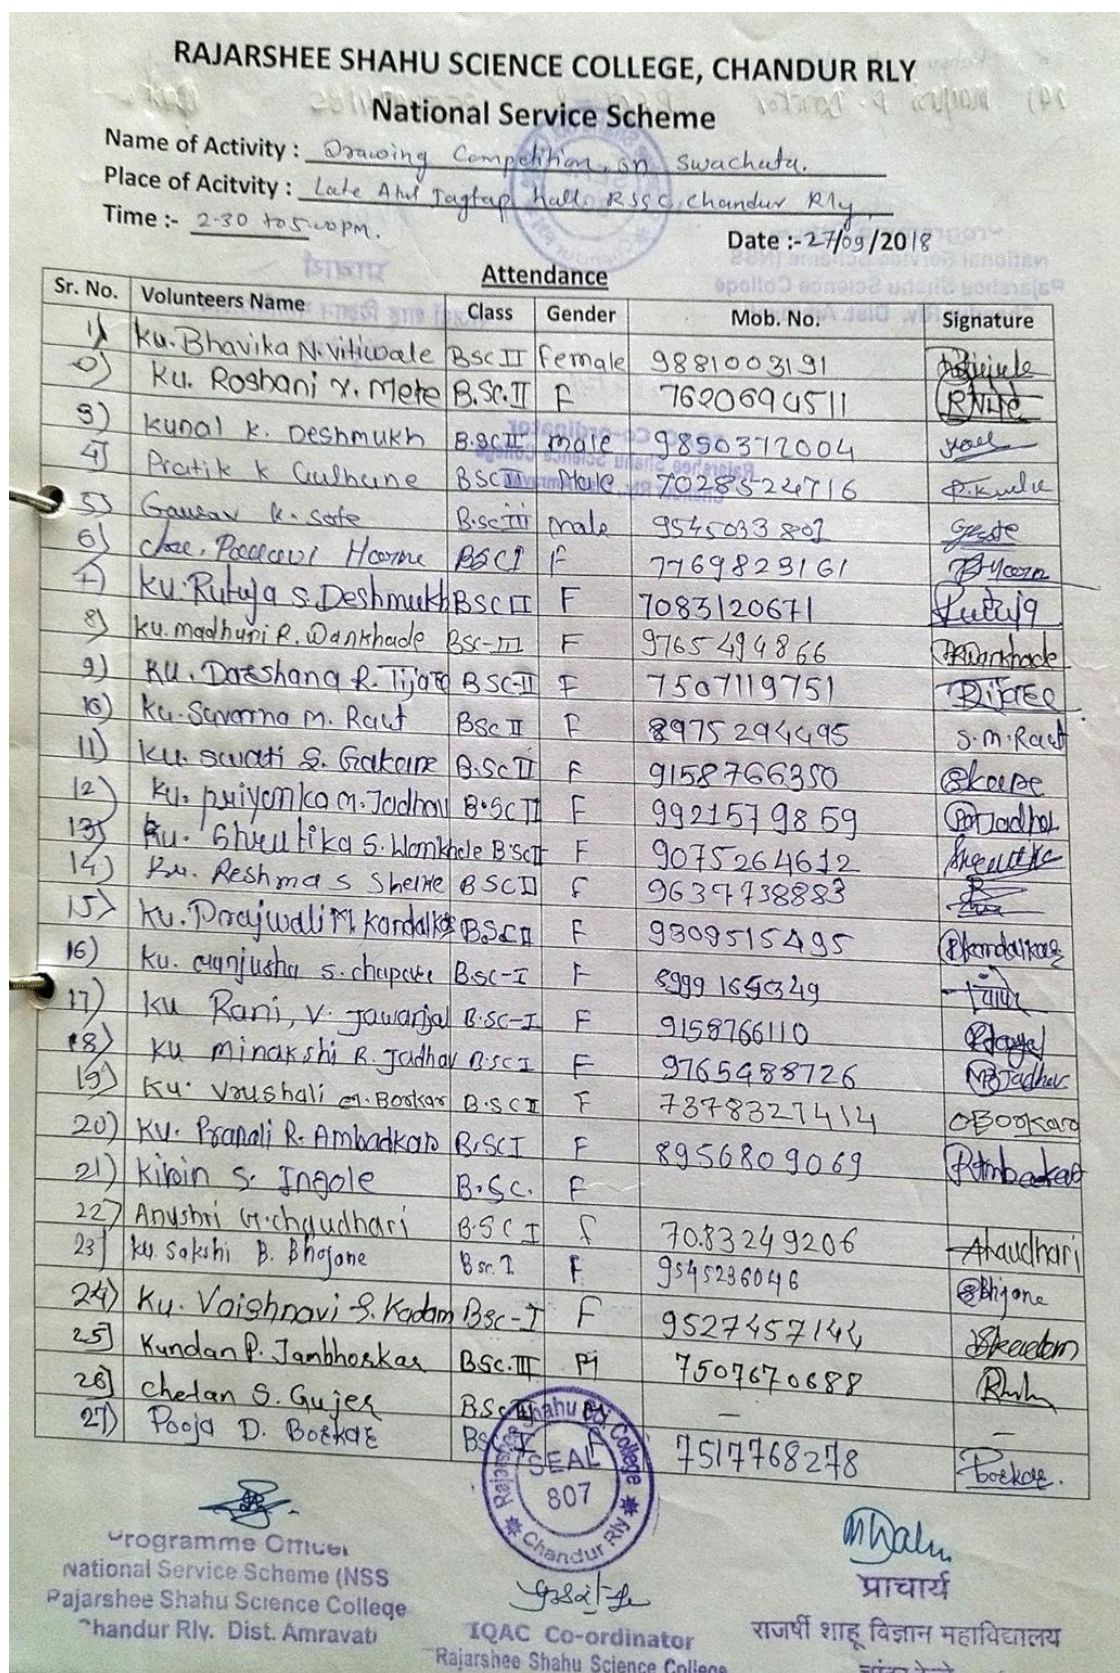 RAJARSHEE SHAHU SCIENCE COLLEGE, CHANDUR RLY
National Service Scheme
Name of Activity : Drawing Competition on Swachata.
Place of Acitvity : Late Atul Jagtap hall. RSSC, Chandur Rly.
Time :- 2.30 to 5.00 pm.
Date :- 27/09/2018
Attendance
Sr. No. Volunteers Name Class Gender Mob. No. Signature
1) Ku. Bhavika N. Vitiwale BSc II Female 9881003191
2) Ku. Roshani Y. Mete B.SC.II F 7620694511
3) Kunal K. Deshmukh B.SC II male 9890372004
4) Pratik K Gulhane BSC II Male 7028524716
5) Gaurav K. Sate B.Sc III male 9545033801
6) Hoome BSC I F 7769823161
7) Ku. Rutuja S. Deshmukh BSC II F 7083120671 Rutuja
8) Ku. madhuri R. Wankhade BSC-III F 9765494866 Wankhade
9) KU. Dareshana R. Tijare BSC-II F 7507119751 Tijare
10) Ku. Suvarna M. Raut BSc II F 8975294495 S.M.Raut
11) Ku. Swati S. Gakare B.Sc II F 9158766350
12) Ku. Priyanka M. Jadhav B.SC II F 9921579859 Jadhav
13) Ku. Shrutika S. Wankhede B.SC II F 9075264612
14) Ku. Reshma S Sheikh BSC II F 9637738883
15) Ku. Prajwali M. Kandalkar BSC II F 9309515495 Pkandalkar
16) Ku. Manjusha S. chapake B.SC-I F 8999165349
17) Ku Rani, V. Jawanjal B.SC-I F 9158766110
18) Ku Minakshi R. Jadhav B.SC I F 9765488726 MRJadhav
19) Ku. Vaushali M. Borkar B.SC II F 7378327414 Borkar
20) Ku. Pranali R. Ambadkar B.SC I F 8956809069 Ambadkar
21) Kirin S. Ingole B.SC. F
22) Anushri G. Chaudhari B.SC I f 7083249206 Ahaudhari
23) Ku. Sakshi B. Bhojane Bsc. I F 9545236046 Bhjane
24) Ku. Vaishnavi S. Kadam BSC-I F 9527457144 Skadam
25) Kundan P. Jambhorkar BSC.III M 7507670688
26) Chetan S. Gujer B.SC M – –
27) Pooja D. Borkar BSC I F 7517768278 Borkar.
Rajarshee Shahu Sci. College
SEAL
807
Chandur Rly
Programme Officer
National Service Scheme (NSS
Rajarshee Shahu Science College
Chandur Rly. Dist. Amravati
IQAC Co-ordinator
Rajarshee Shahu Science College
प्राचार्य
राजर्षी शाहू विज्ञान महाविद्यालय
चांदूर रेल्वे